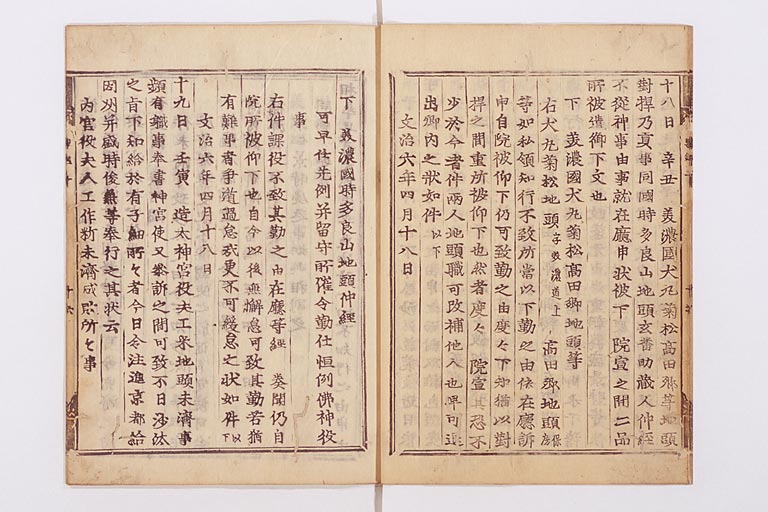 十八日 辛丑 美濃國犬丸菊松高田郷等地頭
對捍乃貢事同國時多良山地頭玄蕃助蔵人仲経
不従神事由事就在廰申状被下 院宣之間二品
所被遣御下文也
下 美濃國犬丸菊松高田郷地頭等
右犬丸菊松地頭字敦濃道上 高田郷地頭保房
等如私領知行不致所當以下勤之由依在廰訴
申自院被仰下仍可致勤之由度々下知猶以對
捍之間重所被仰下也然者度々 院宣其恐不
少於今者件両人地頭職可改補他人也早可退
出郷内之状如件以下
文治六年四月十八日
下 美濃國時多良山地頭仲經
可早任先例并留守所催令勤仕恒例佛神役
事
右件課役不致其勤之由在廰等經 奏聞仍自
院所被仰下也自今以後無懈怠可致其勤若猶
有難事者爭遁過怠哉更不可緩怠之状如件以下
文治六年四月十八日
十九日 壬寅 造太神宮役夫工米地頭未濟事
頻有職事奉書神宮使又参訴之間可致不日沙汰
之旨下知給於有子細所々者今日令注進京都給
因州并盛時俊兼等奉行之其状云
内宮役夫工工作料未濟成敗所々事